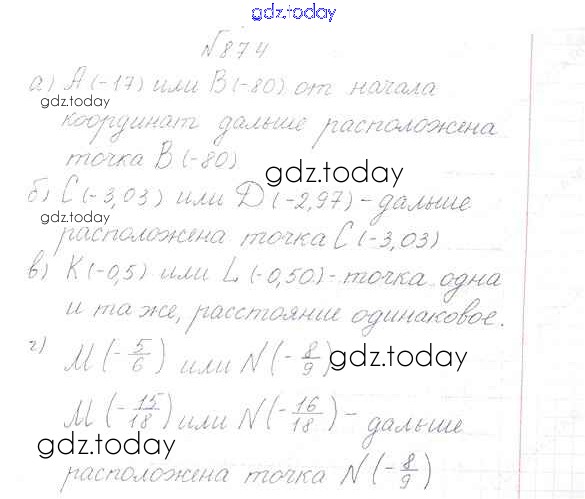 gdz.today
№874
а) А(-17) или В(-80) от начала
gdz.today
координат дальше расположена
точка В(-80)
gdz.today
б) С(-3,03) или D(-2,97) - дальше
gdz.today
расположена точка С(-3,03)
в) К(-0,5) или L(-0,50) - точка одна
и та же, расстояние одинаковое.
г) М(-5/6) или N(-8/9)
gdz.today
М(-15/18) или N(-16/18) - дальше
gdz.today
расположена точка N(-8/9)